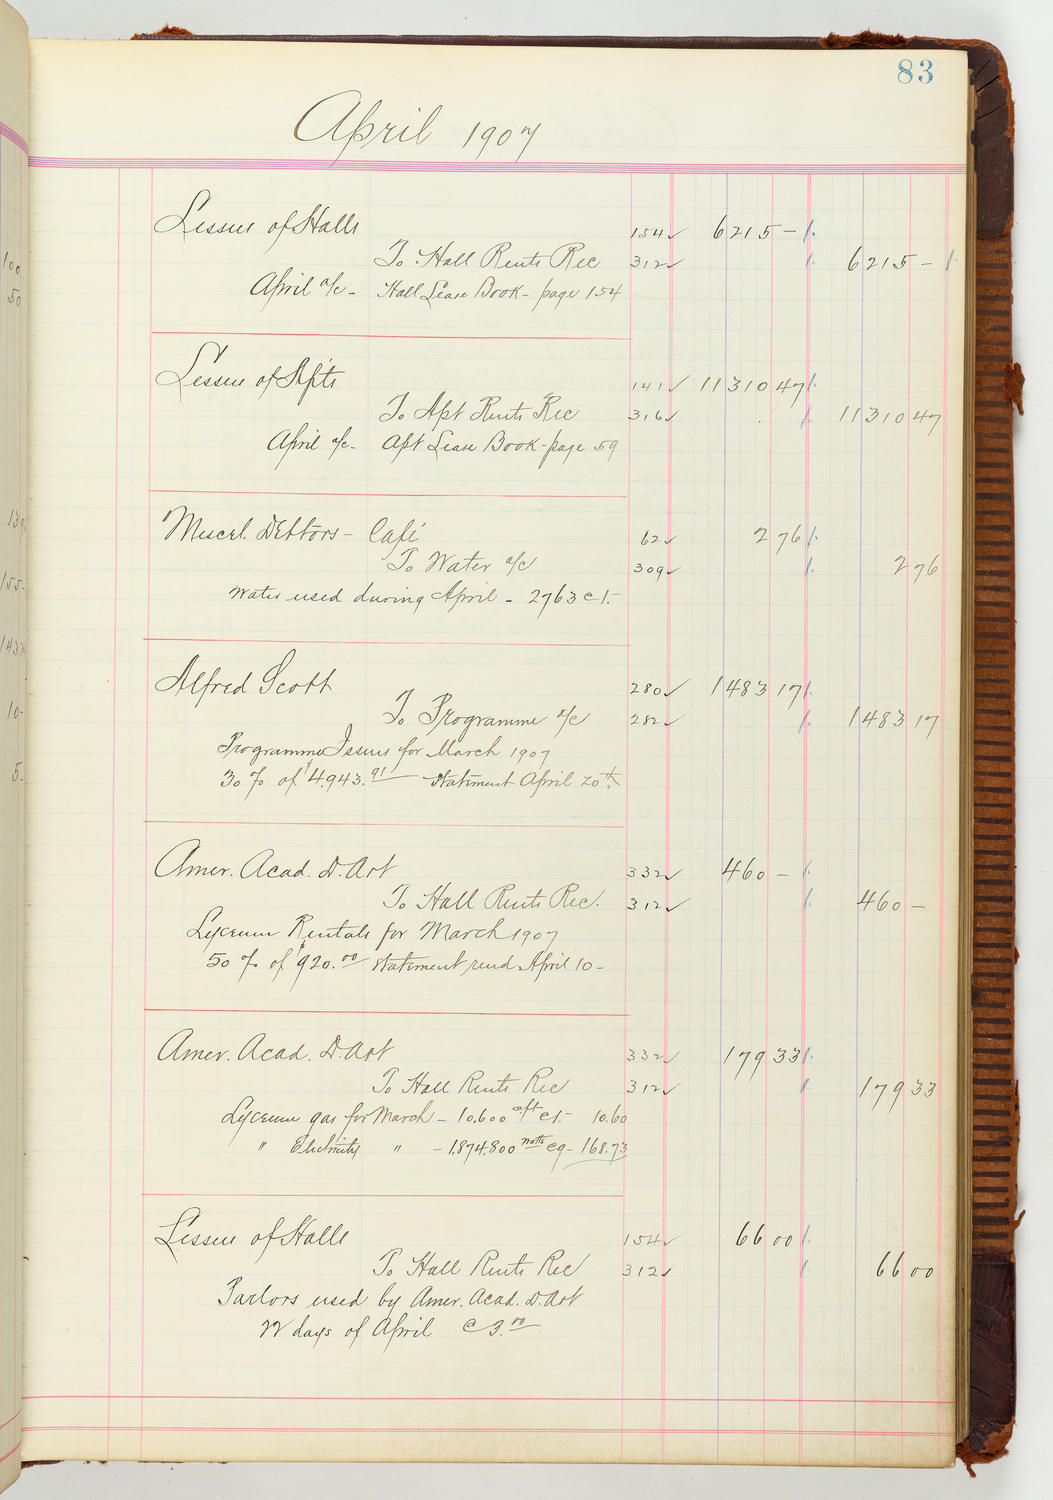 83
April 1907
Lessees of Halls 154 6215 –
To Hall Rents Rec 312 6215 –
April a/c – Hall Lease Book – page 154
Lessees of Apts 141 11310 47
To Apt Rents Rec 316 11310 47
April a/c – Apt Lease Book – page 59
Miscel. Debtors – Café 62 2 76
To Water a/c 309 2 76
Water used during April – 2763 @ 1.–
Alfred Scott 280 1483 17
To Programme a/c 282 1483 17
Programme Issues for March 1907
30% of $4,943.91 Statement April 20th
Amer. Acad. D. Art 332 460 –
To Hall Rents Rec. 312 460 –
Lyceum Rentals for March 1907
50% of $920.00 Statement rend April 10 –
Amer. Acad. D. Art 332 179 33
To Hall Rents Rec 312 179 33
Lyceum gas for March – 10,600 cft @ 1.– 10.60
" Electricity " – 1,874,800 watts @ 9 – 168.73
Lessees of Halls 154 66 00
To Hall Rents Rec 312 66 00
Parlors used by Amer. Acad. D. Art
22 days of April @ 3.00
100
50
139
155-
143
10-
5-